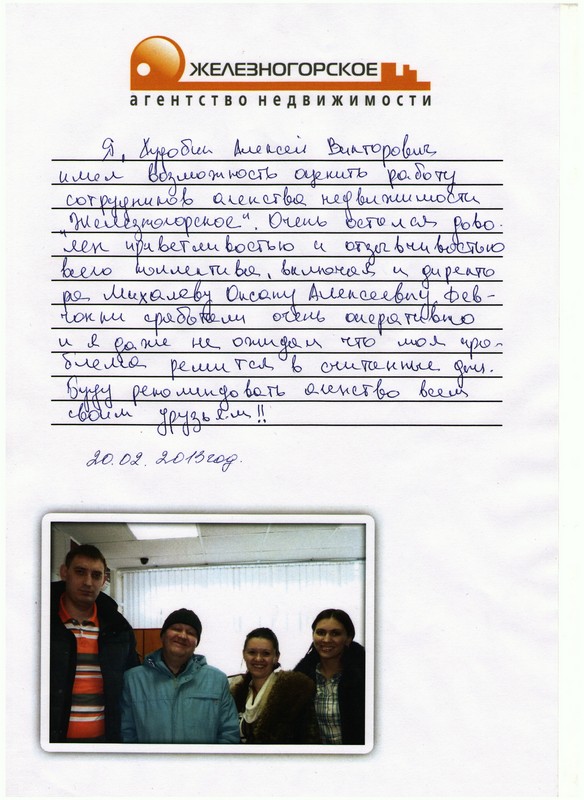 ЖЕЛЕЗНОГОРСКОЕ
агентство недвижимости
Я, Худобин Алексей Викторович
имел возможность оценить работу
сотрудников агенства недвижимости
"Железногорское". Очень остался дово-
лен приветливостью и отзывчивостью
всего коллектива, включая и директо
ра Михалеву Оксану Алексеевну. Дев-
чонки сработали очень оперативно
и я даже не ожидал что моя про-
блема решится в считенные дни.
Буду рекомендовать агенство всем
своим друзьям!!
20.02.2013 год.